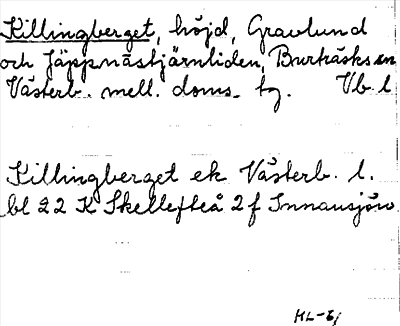 Killingberget, höjd, Gravlund
och Jäppnästjärnliden, Burträsks sn
Västerb. mell. doms. tg. Vb. l.
Killingberget ek Västerb. l.
bl 22 K Skellefteå 2 f Innansjön